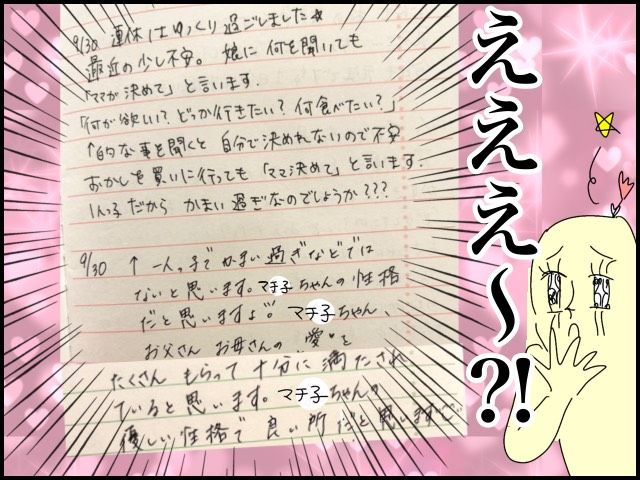 9/30 連休はゆっくり過ごしました☆
最近の少し不安。娘に何を聞いても
「ママが決めて」と言います。
「何が欲しい？どっか行きたい？何食べたい？」
↑的な事を聞くと自分で決めれないので不安
おかしを買いに行っても「ママ決めて」と言います.
1人っ子だからかまい過ぎなのでしょうか???
9/30 ↑一人っ子でかまい過ぎなどでは
ないと思います。マチ子ちゃんの性格
だと思いますよ。マチ子ちゃん、
お父さんお母さんの愛を
たくさんもらって十分に満たされ
ていると思います。マチ子ちゃんの
優しい性格で良い所だと思います
えええ〜?!